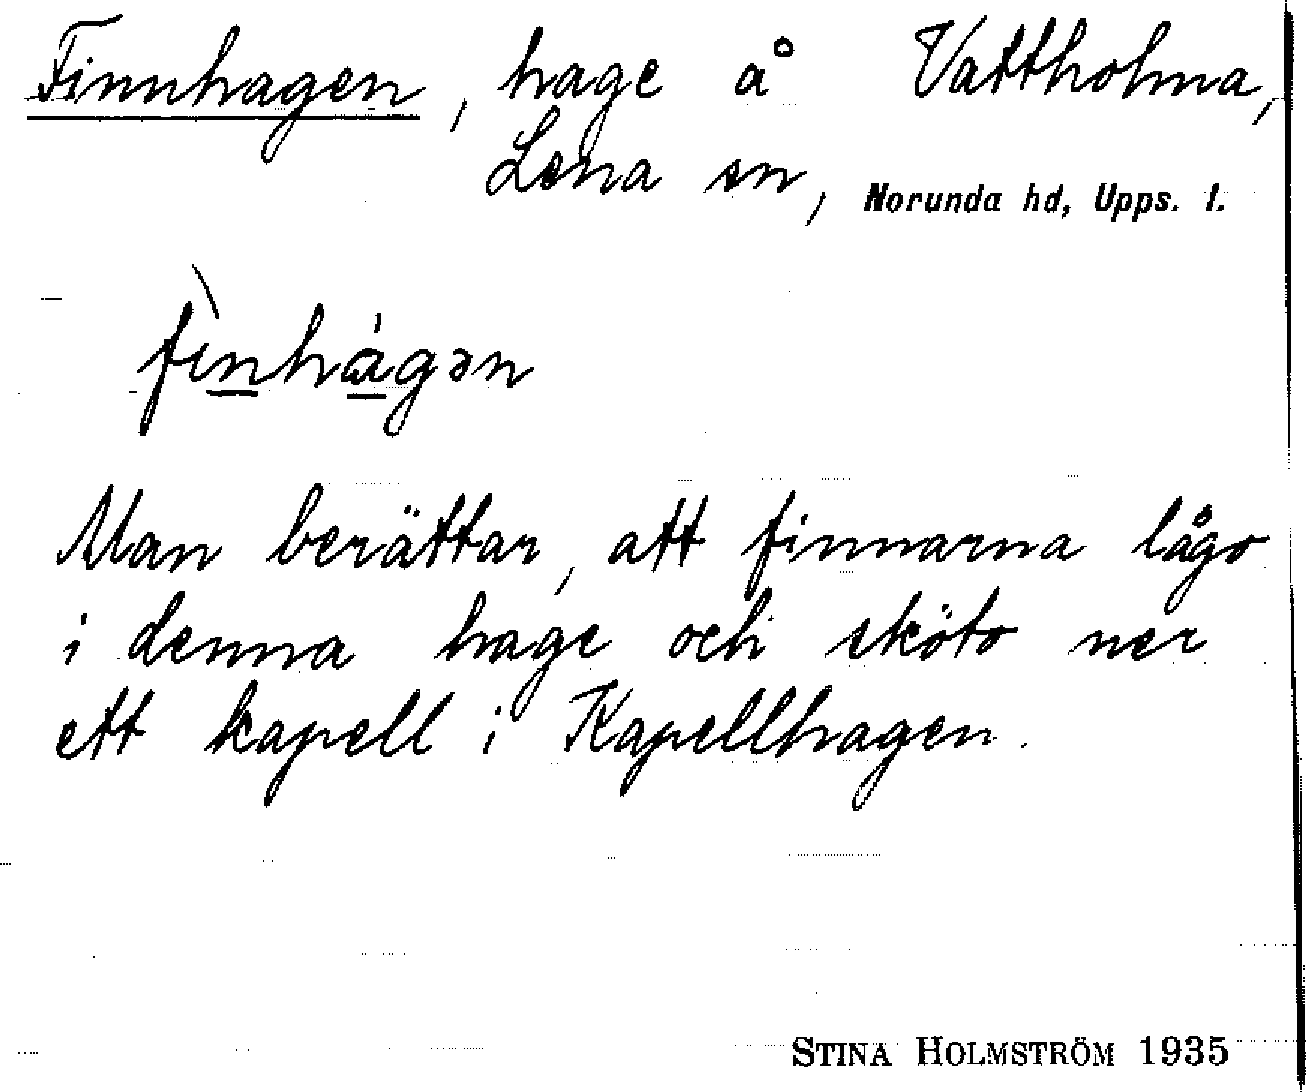 Finnhagen, hage å Vattholma,
Lena sn, Norunda hd, Upps. l.
fìnhágən
Man berättar, att finnarna lågo
i denna hage och sköto ner
ett kapell i Kapellhagen.
STINA HOLMSTRÖM 1935